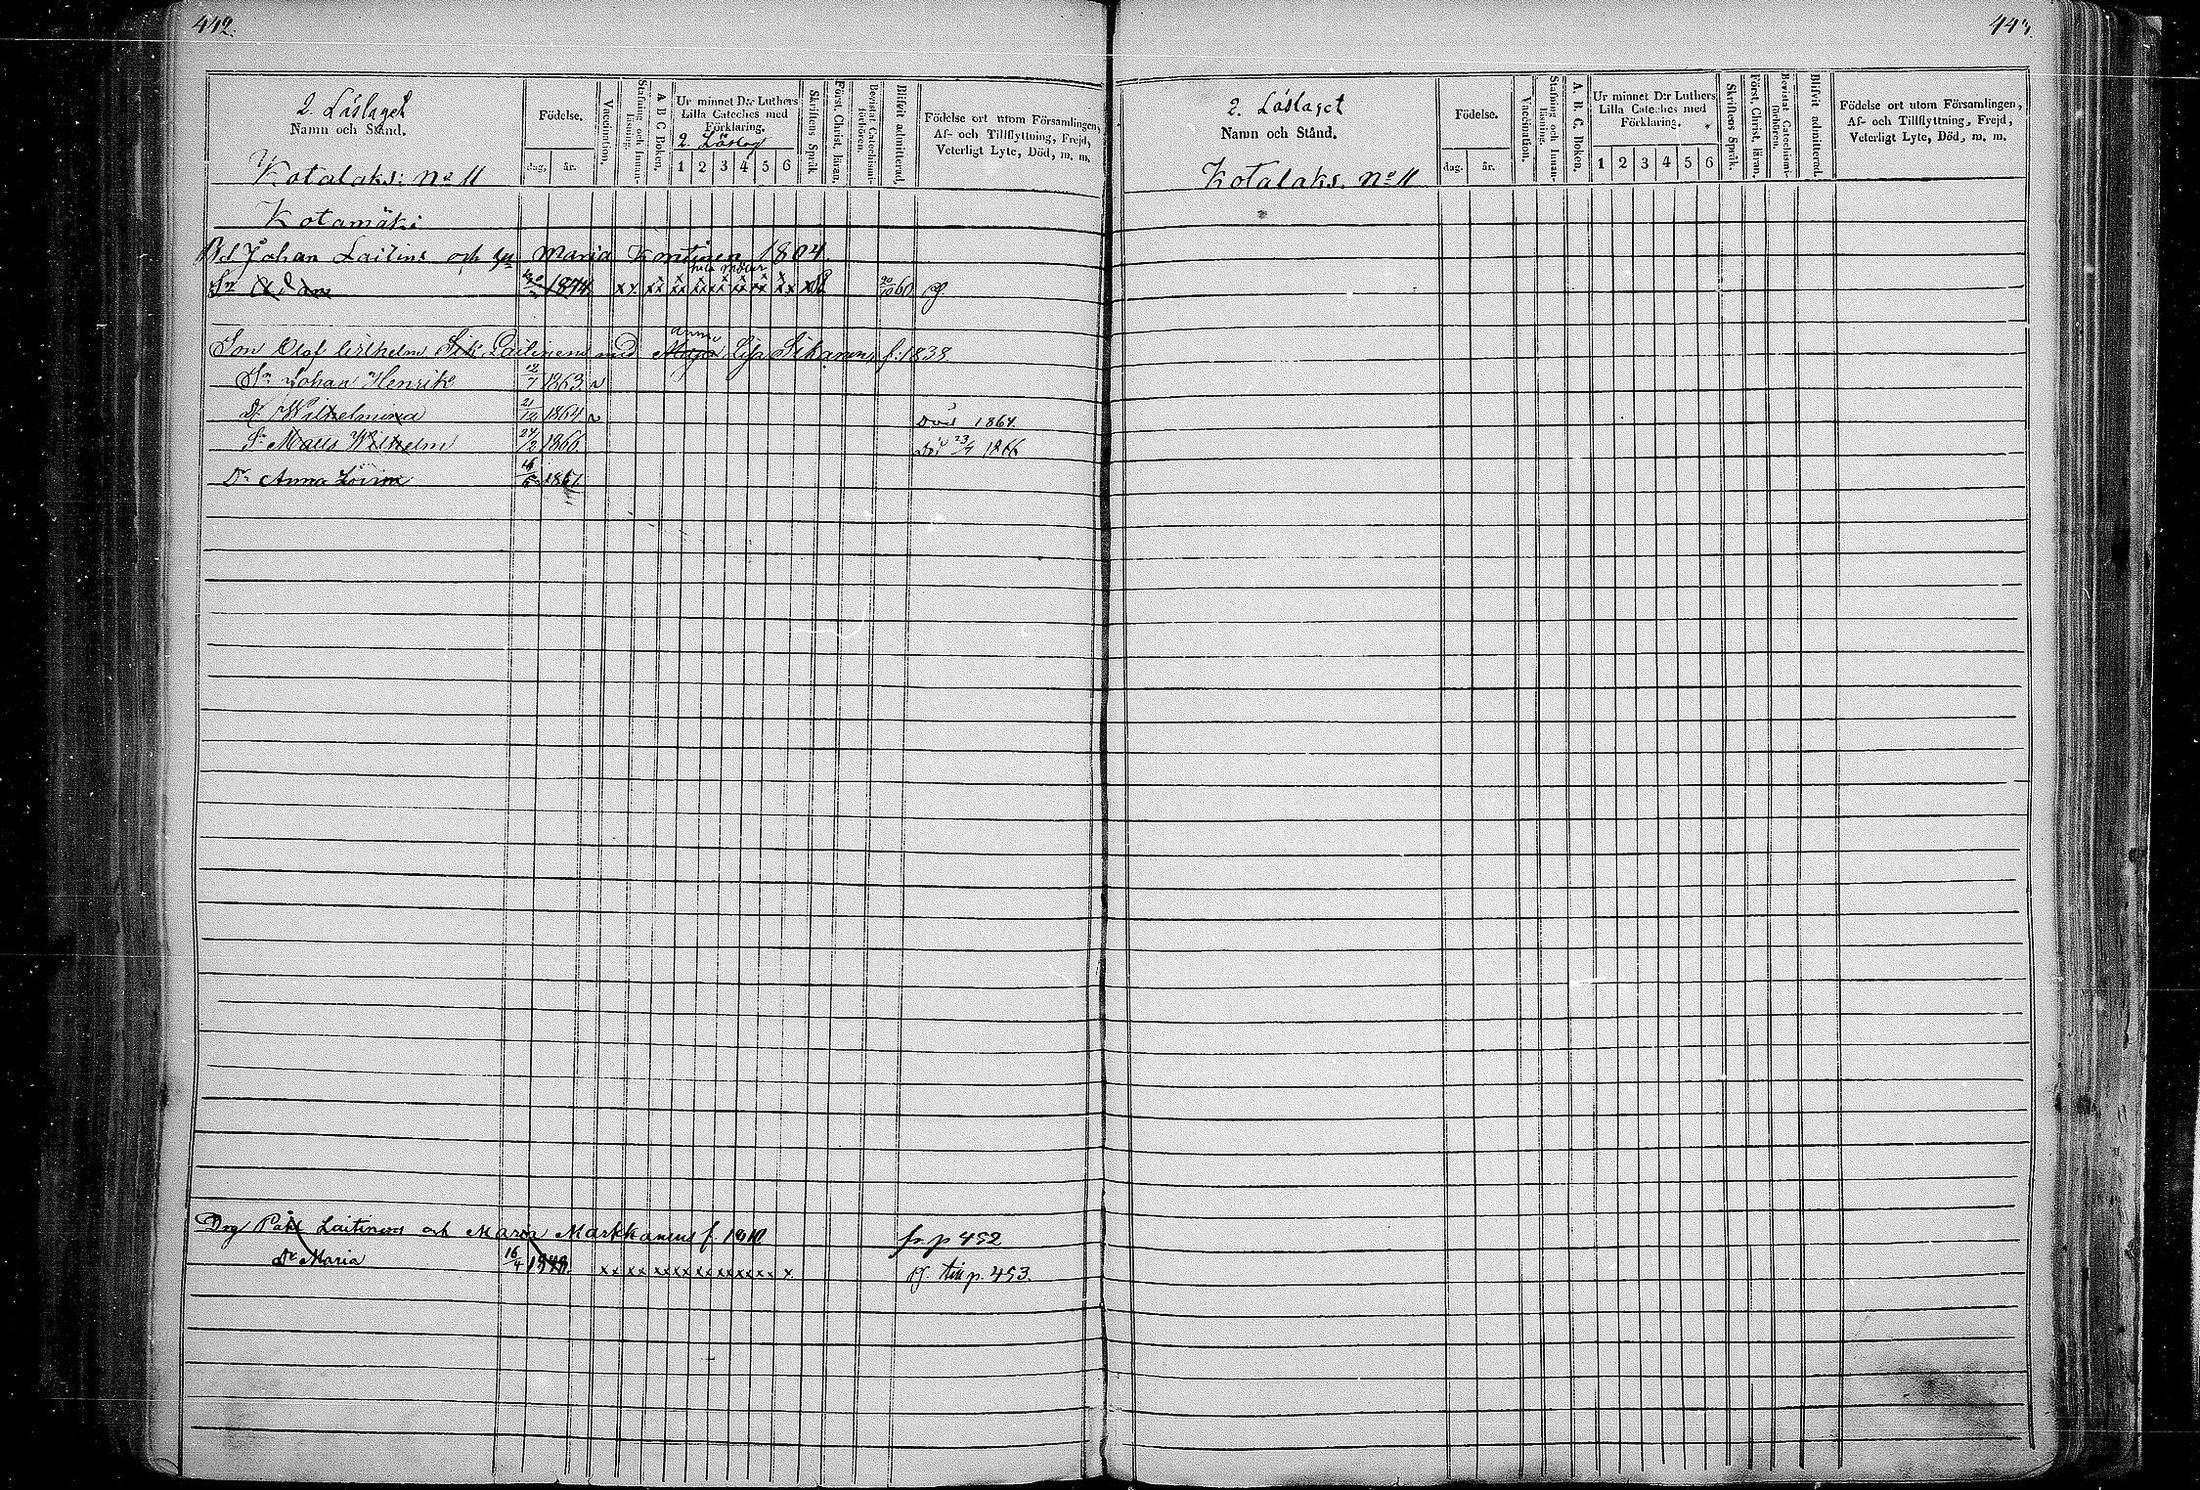 442.
2. Läslaget
Namn och Stånd.
Födelse.
dag. år.
Vaccination.
Stafning och Innanläsning.
A B C Boken.
Ur minnet D:r Luthers Lilla Cateches med Förklaring.
2. Läslag
1 2 3 4 5 6
Skriftens Språk
Först. Christ. läran.
Bevistat Catechismiförhören.
Blifvit admitterad.
Födelse ort utom Församlingen, Af- och Tillflyttning, Frejd, Veterligt Lyte, Död, m. m.
Kotalaks: No 11
Kotamäki
Johan Laitine och hu Maria Kontinen 1804.
Sn Adam 1844 60 g.
Son Olof Wilhelm Laitinens med Maja Anna Lisa Sikanen f: 1838
Sn Johan Henrik 12/7 1863 v
Dr Wilhelmina 21/12 1864 v Död 1864.
Sn Matts Wilhelm 24/2 1866. Död 23/4 1866
Dr Anna Lovisa 16/6 1867.
Drg Påhl Laitinens och Maria Markkanens f. 1810 fr. p 452
Dr Maria 16/4 1848. xx xx xx xx xx xx xx x fl. till p. 453.
443.
2. Läslaget
Namn och Stånd.
Födelse.
dag. år.
Vaccination.
Stafning och Innanläsning.
A. B. C. Boken.
Ur minnet D:r Luthers Lilla Cateches med Förklaring.
1 2 3 4 5 6
Skriftens Språk.
Först. Christ. läran.
Bevistat Catechismiförhören.
Blifvit admitterad.
Födelse ort utom Församlingen, Af- och Tillflyttning, Frejd, Veterligt Lyte, Död, m. m.
Kotalaks. No 11